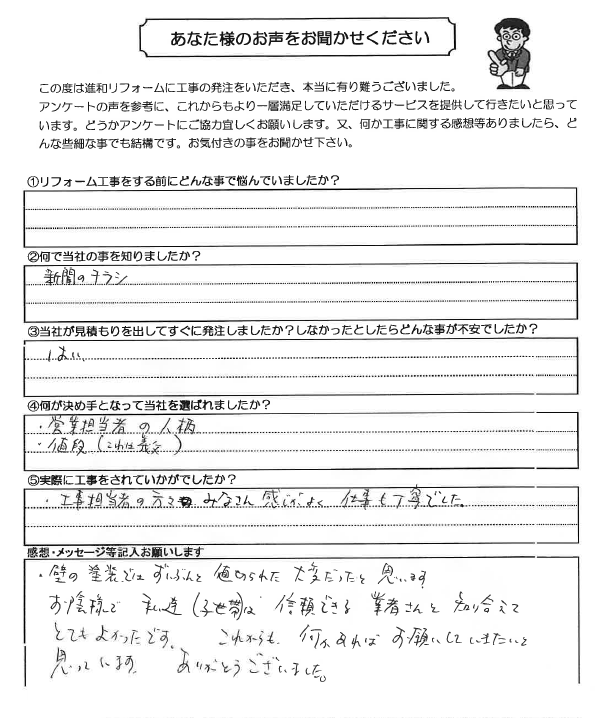 あなた様のお声をお聞かせください
この度は進和リフォームに工事の発注をいただき、本当に有り難うございました。
アンケートの声を参考に、これからもより一層満足していただけるサービスを提供して行きたいと思って
います。どうかアンケートにご協力宜しくお願いします。又、何か工事に関する感想等ありましたら、ど
んな些細な事でも結構です。お気付きの事をお聞かせ下さい。
①リフォーム工事をする前にどんな事で悩んでいましたか？
②何で当社の事を知りましたか？
新聞のチラシ
③当社が見積もりを出してすぐに発注しましたか？しなかったとしたらどんな事が不安でしたか？
はい、
④何が決め手となって当社を選ばれましたか？
・営業担当者の人柄
・値段（これは義父）
⑤実際に工事をされていかがでしたか？
・工事担当者の方々みなさん感じがよく仕事も丁寧でした。
感想・メッセージ等記入お願いします
・壁の塗装ではずいぶんと値切られた大変だったと思います
お陰様で私達（子世帯）は信頼できる業者さんと知り合えて
とてもよかったです。これからも、何かあればお願いしていきたいと
思っています。ありがとうございました。